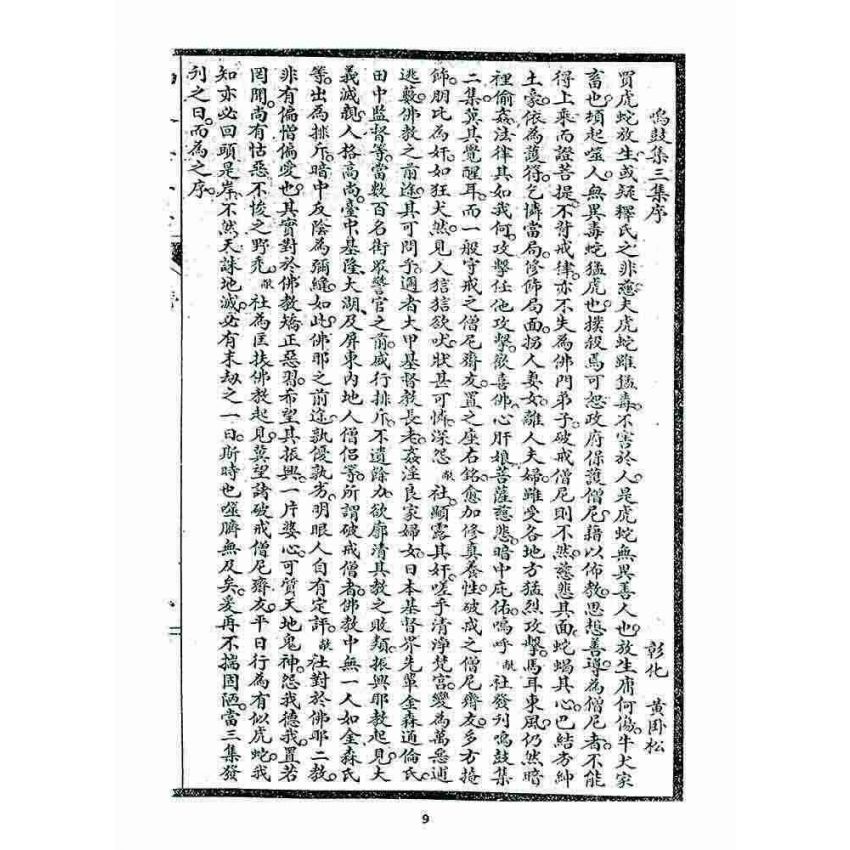 鳴鼓集三集序
彰化 黃臥松
買虎蛇放生。或疑釋氏之非慈。夫虎蛇雖猛毒。不害於人。是虎蛇無異善人也。放生庸何傷。牛犬家
畜也。頃起噬人。無異毒蛇猛虎也。撲殺焉可恕。政府保護僧尼。藉以佈教。思想善導。為僧尼者。不能
得上乘而證菩提。不背戒律。亦不失為佛門弟子。破戒僧尼則不然。慈悲其面。蛇蝎其心。巴結劣紳
土豪。依為護符。乞憐當局。修飾局面。拐人妻女。離人夫婦。雖受各地方猛烈攻擊。馬耳東風。仍然暗
裡偷姦。法律其如我何。攻擊任他攻擊。歡喜佛心肝娘。菩薩慈悲。暗中庇佑。嗚呼。敝社發刊鳴鼓集
二集。冀其覺醒耳。而一般守戒之僧尼齋友。置之座右銘。愈加修真養性。破戒之僧尼齋友。多方掩
飾。朋比為奸。如狂犬然。見人狺狺欲吠。狀甚可憐。深怨敝社顯露其奸。嗟乎。清淨梵宮。變為萬惡逋
逃藪。佛教之前途。其可問乎。邇者大甲基督教長老。姦淫良家婦女。日本基督界先輩金森通倫氏。
田中監督等。當數百名街眾警官之前。威行排斥。不遺餘力。欲廓清其教之敗類。振興耶教起見。大
義滅親。人格高尚。臺中基隆大湖及屏東內地人僧侶等。所謂破戒僧者。佛教中無一人如金森氏
等。出為排斥。暗中反陰為彌縫。如此佛耶之前途。孰優孰劣。明眼人自有定評。敝社對於佛耶二教。
非有偏憎偏愛也。其實對於佛教矯正惡習。希望其振興。一片婆心。可質天地鬼神。怨我德我。置若
罔聞。尚有怙惡不悛之野禿。敝社為匡扶佛教起見。冀望諸破戒僧尼齋友。平日行為有似虎蛇。我
知亦必回頭是岸。不然天誅地滅。必有末劫之一日。斯時也。噬臍無及矣。爰再不揣固陋。當三集發
刊之日。而為之序。
9